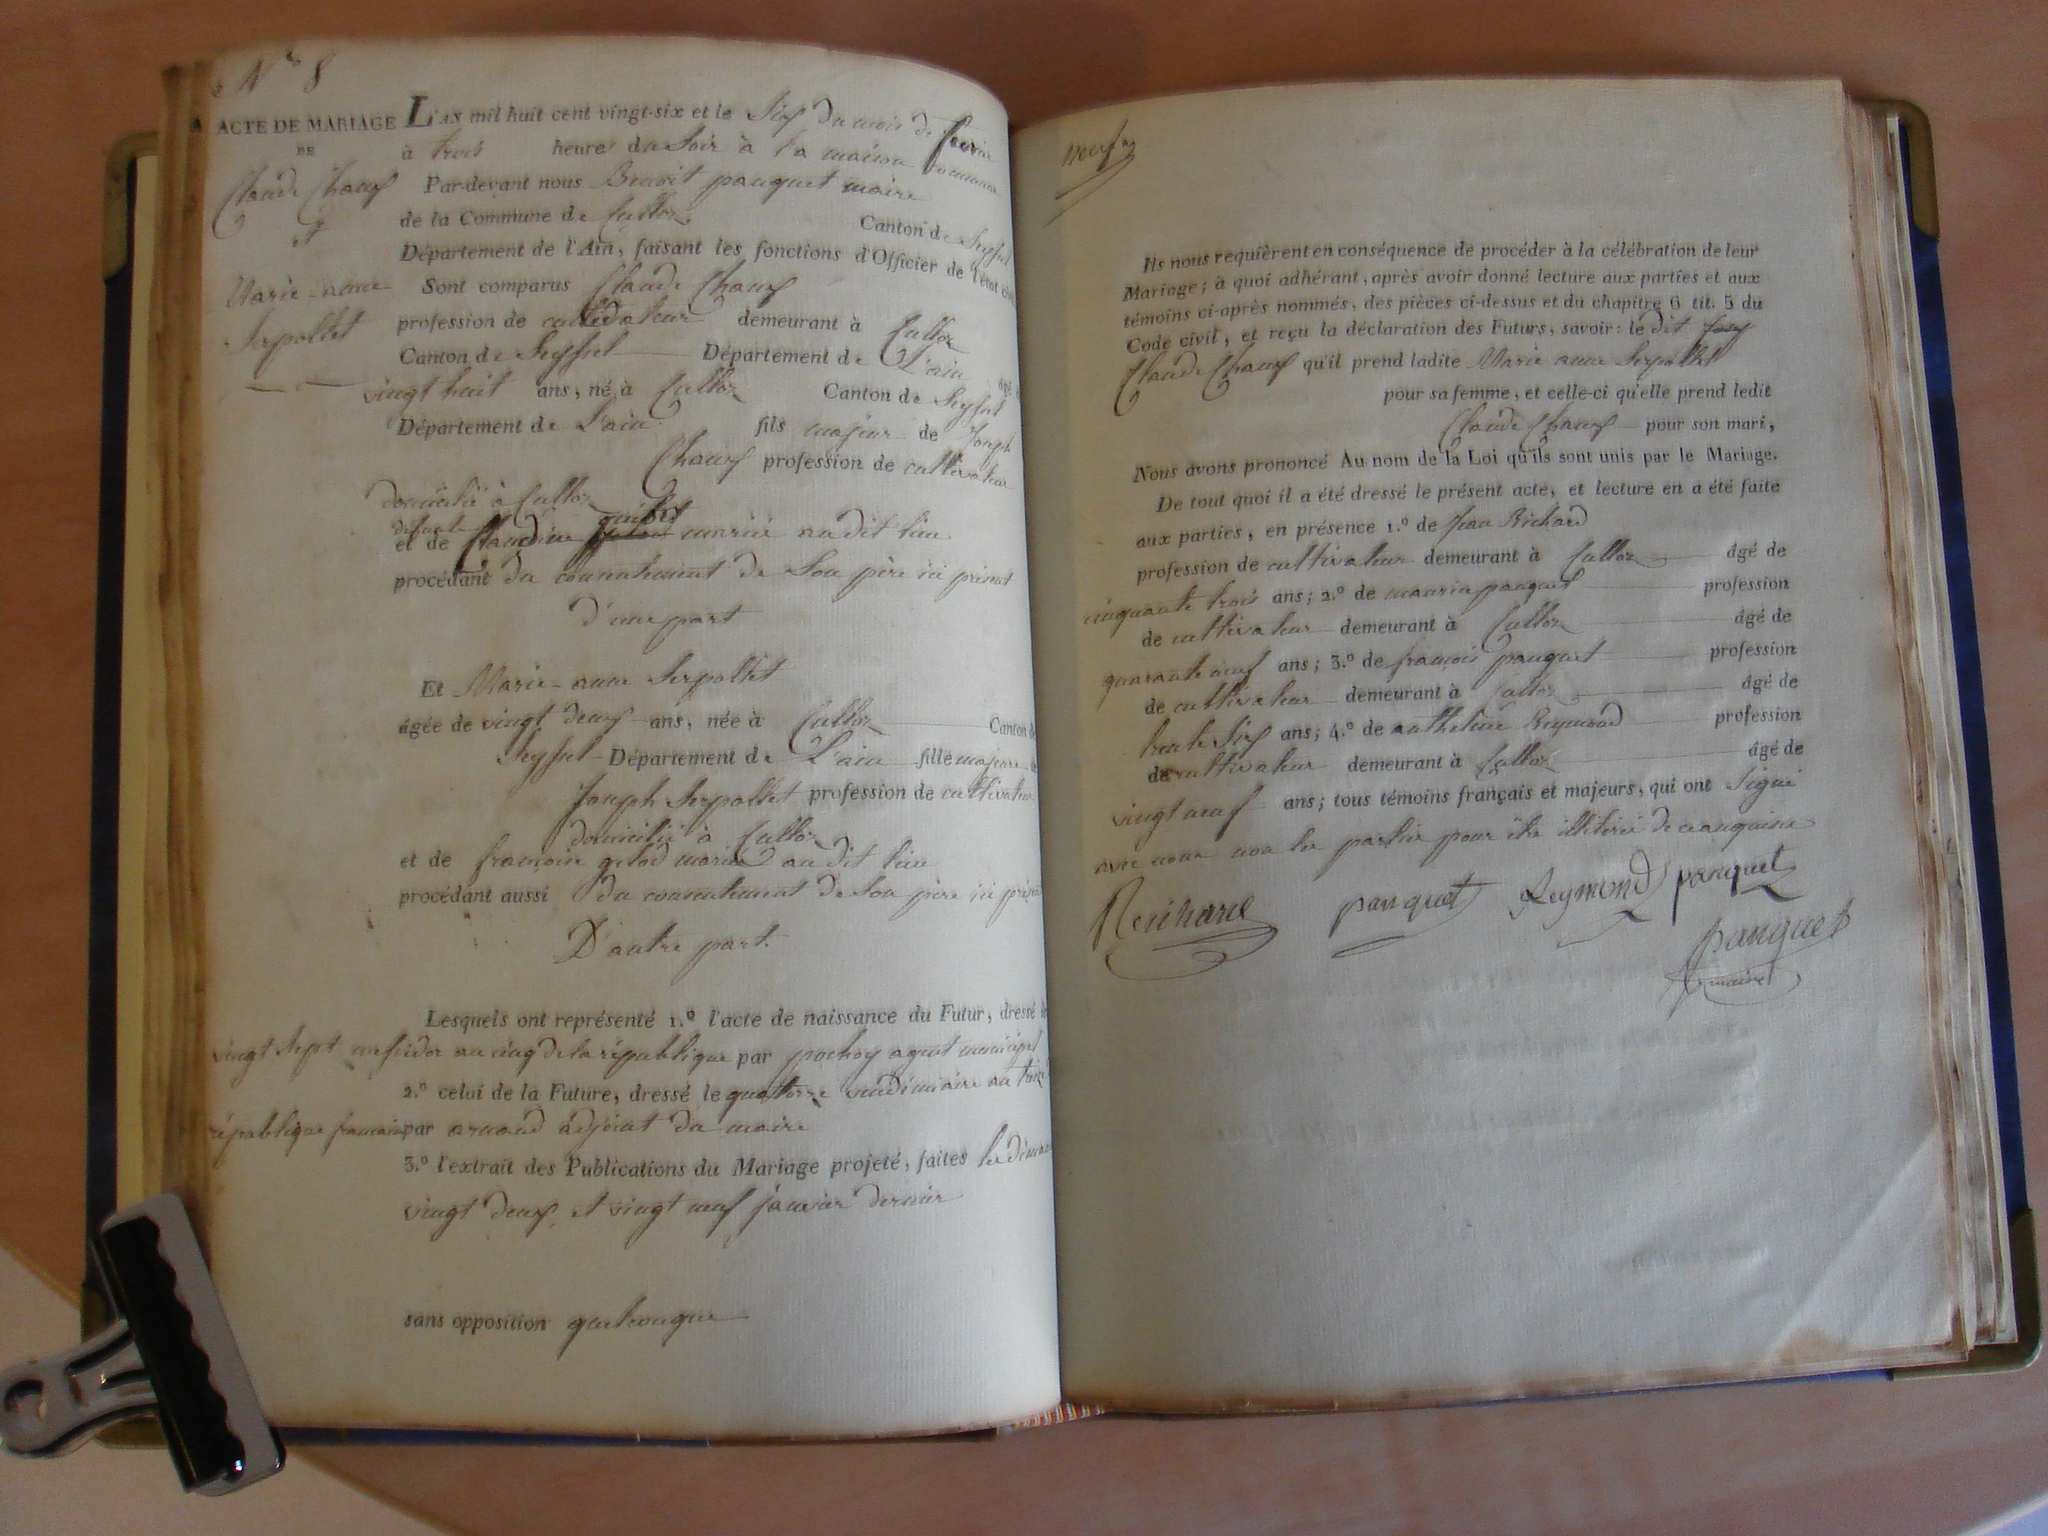 N° 8
ACTE DE MARIAGE
DE
Claude Chauf
et
Marie-anne
Serpollet
L'AN mil huit cent vingt-six et le Six du mois de fevrier
à trois heures du Soir à la maison commune
Par-devant nous Benoit pauquet maire
de la Commune de Culloz Canton de Seyssel
Département de l'Ain, faisant les fonctions d'Officier de l'état civil
Sont comparus Claude Chauf
profession de cultivateur demeurant à Culloz
Canton de Seyssel Département de L'ain âgé de
vingt huit ans, né à Culloz Canton de Seyssel
Département de L'ain fils majeur de Joseph
Chauf profession de cultivateur
domicilié à Culloz
defunte
et de Claudine mariée au dit lieu
procédant du consentement de Son père ici présent
d'une part
Et Marie-anne Serpollet
âgée de vingt deux ans, née à Culloz Canton de
Seyssel Département de L'ain fille majeure de
Joseph Serpollet profession de cultivateur
domicilié à Culloz
et de françoise gilod mariée au dit lieu
procédant aussi du consentement de Son père ici présent
D'autre part.
Lesquels ont représenté 1.° l'acte de naissance du Futur, dressé le
vingt Sept messidor an cinq de la république par pochoy agent municipal
2.° celui de la Future, dressé le quattorze vendémiaire an treize
république francaise par armand adjoint du maire
3.° l'extrait des Publications du Mariage projeté, faites les dimanches
vingt deux et vingt neuf janvier dernier
sans opposition quelconque
neuf
Ils nous requièrent en conséquence de procéder à la célébration de leur
Mariage; à quoi adhérant, après avoir donné lecture aux parties et aux
témoins ci-après nommés, des pièces ci-dessus et du chapitre 6 tit. 5 du
Code civil, et reçu la déclaration des Futurs, savoir: le dit
Claude Chauf qu'il prend ladite Marie anne Serpollet
pour sa femme, et celle-ci qu'elle prend ledit
Claude Chauf pour son mari,
Nous avons prononcé Au nom de la Loi qu'ils sont unis par le Mariage.
De tout quoi il a été dressé le présent acte, et lecture en a été faite
aux parties, en présence 1.° de Jean Richard
profession de cultivateur demeurant à Culloz âgé de
cinquante trois ans; 2.° de maurice pauquet profession
de cultivateur demeurant à Culloz âgé de
quarante neuf ans; 3.° de françois pauquet profession
de cultivateur demeurant à Culloz âgé de
trente Six ans; 4.° de anthelme Reymond profession
de cultivateur demeurant à Culloz âgé de
vingt neuf ans; tous témoins français et majeurs, qui ont Signé
avec nous non les parties pour être illitérés de ce enquises
Reichard pauquet Reymond pauquet
pauquet
maire